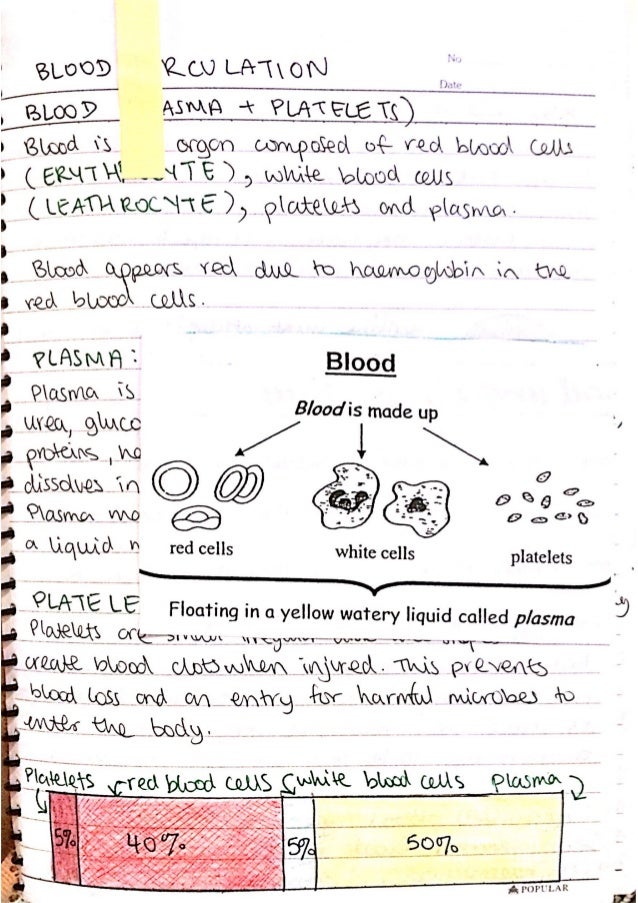 No
BLOOD RCULATION
Date
BLOOD ASMA + PLATELETS)
Blood is organ composed of red blood cells
(ERYTH YTE), white blood cells
(LEATHROCYTE), platelets and plasma.
Blood appears red due to haemoglobin in the
red blood cells.
PLASMA:
Plasma is
urea, gluco
proteins, ho
dissolves in
Plasma mo
a liquid
Blood
Blood is made up
red cells
white cells
platelets
Floating in a yellow watery liquid called plasma
PLATELE
Platelets are
create blood clots when injured. This prevents
blood loss and an entry for harmful microbes to
enter the body.
Platelets red blood cells white blood cells plasma
5% 40% 5% 50%
POPULAR